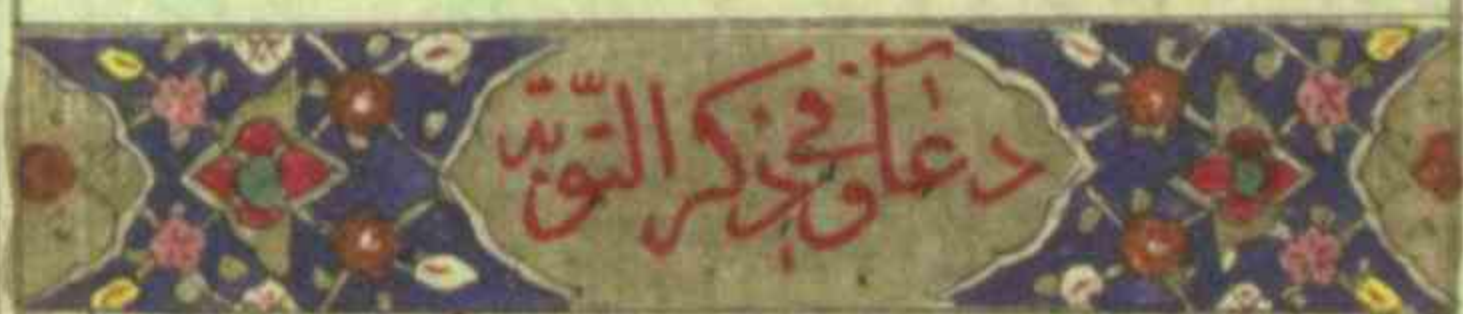 دعآؤه في ذكر التّوبة